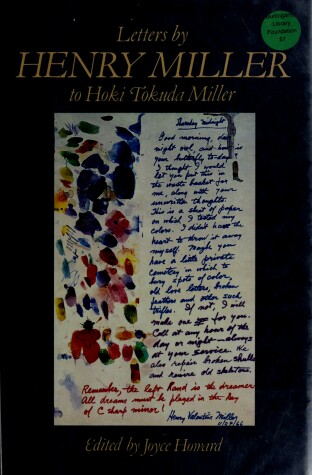 Huntington
Library
Foundation
Letters by
HENRY MILLER
to Hoki Tokuda Miller
Thursday midnight
Good morning, dear
night owl, and how is
your butterfly to-day?
I thought I would
let you put this in
the waste basket for
me, along with your
unwritten thoughts.
This is a sheet of paper
on which I tested my
colors. I didn't have the
heart to throw it away
myself. Maybe you
have a little private
cemetery in which to
bury spots of color,
old love letters, broken
feathers and other such
trifles. If not, I will
make one for you.
Call at any hour of the
day or night—always
at your service. We
also repair broken
and revive old
Remember, the left hand is the dreamer
All dreams must be played in the key
of C sharp minor!
Henry Valentine Miller
11/24/66
Edited by Joyce Howard